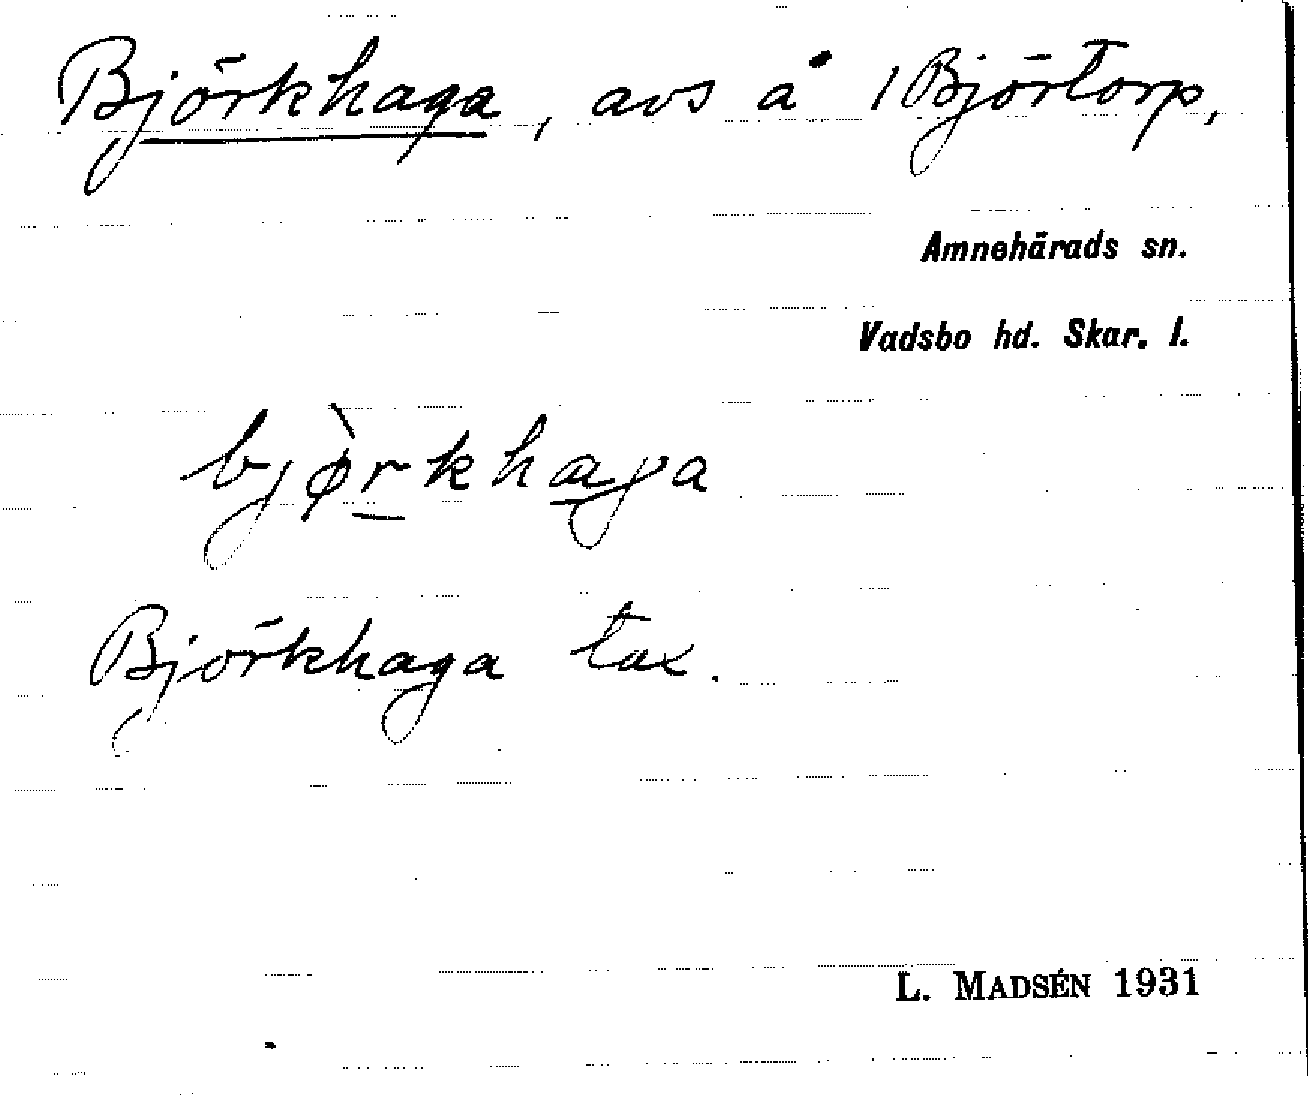 Björkhaga, avs å 1 Björtorp,
Amnehärads sn.
Vadsbo hd. Skar. l.
bjø̀rkhaga
Björkhaga tax.
L. MADSÉN 1931